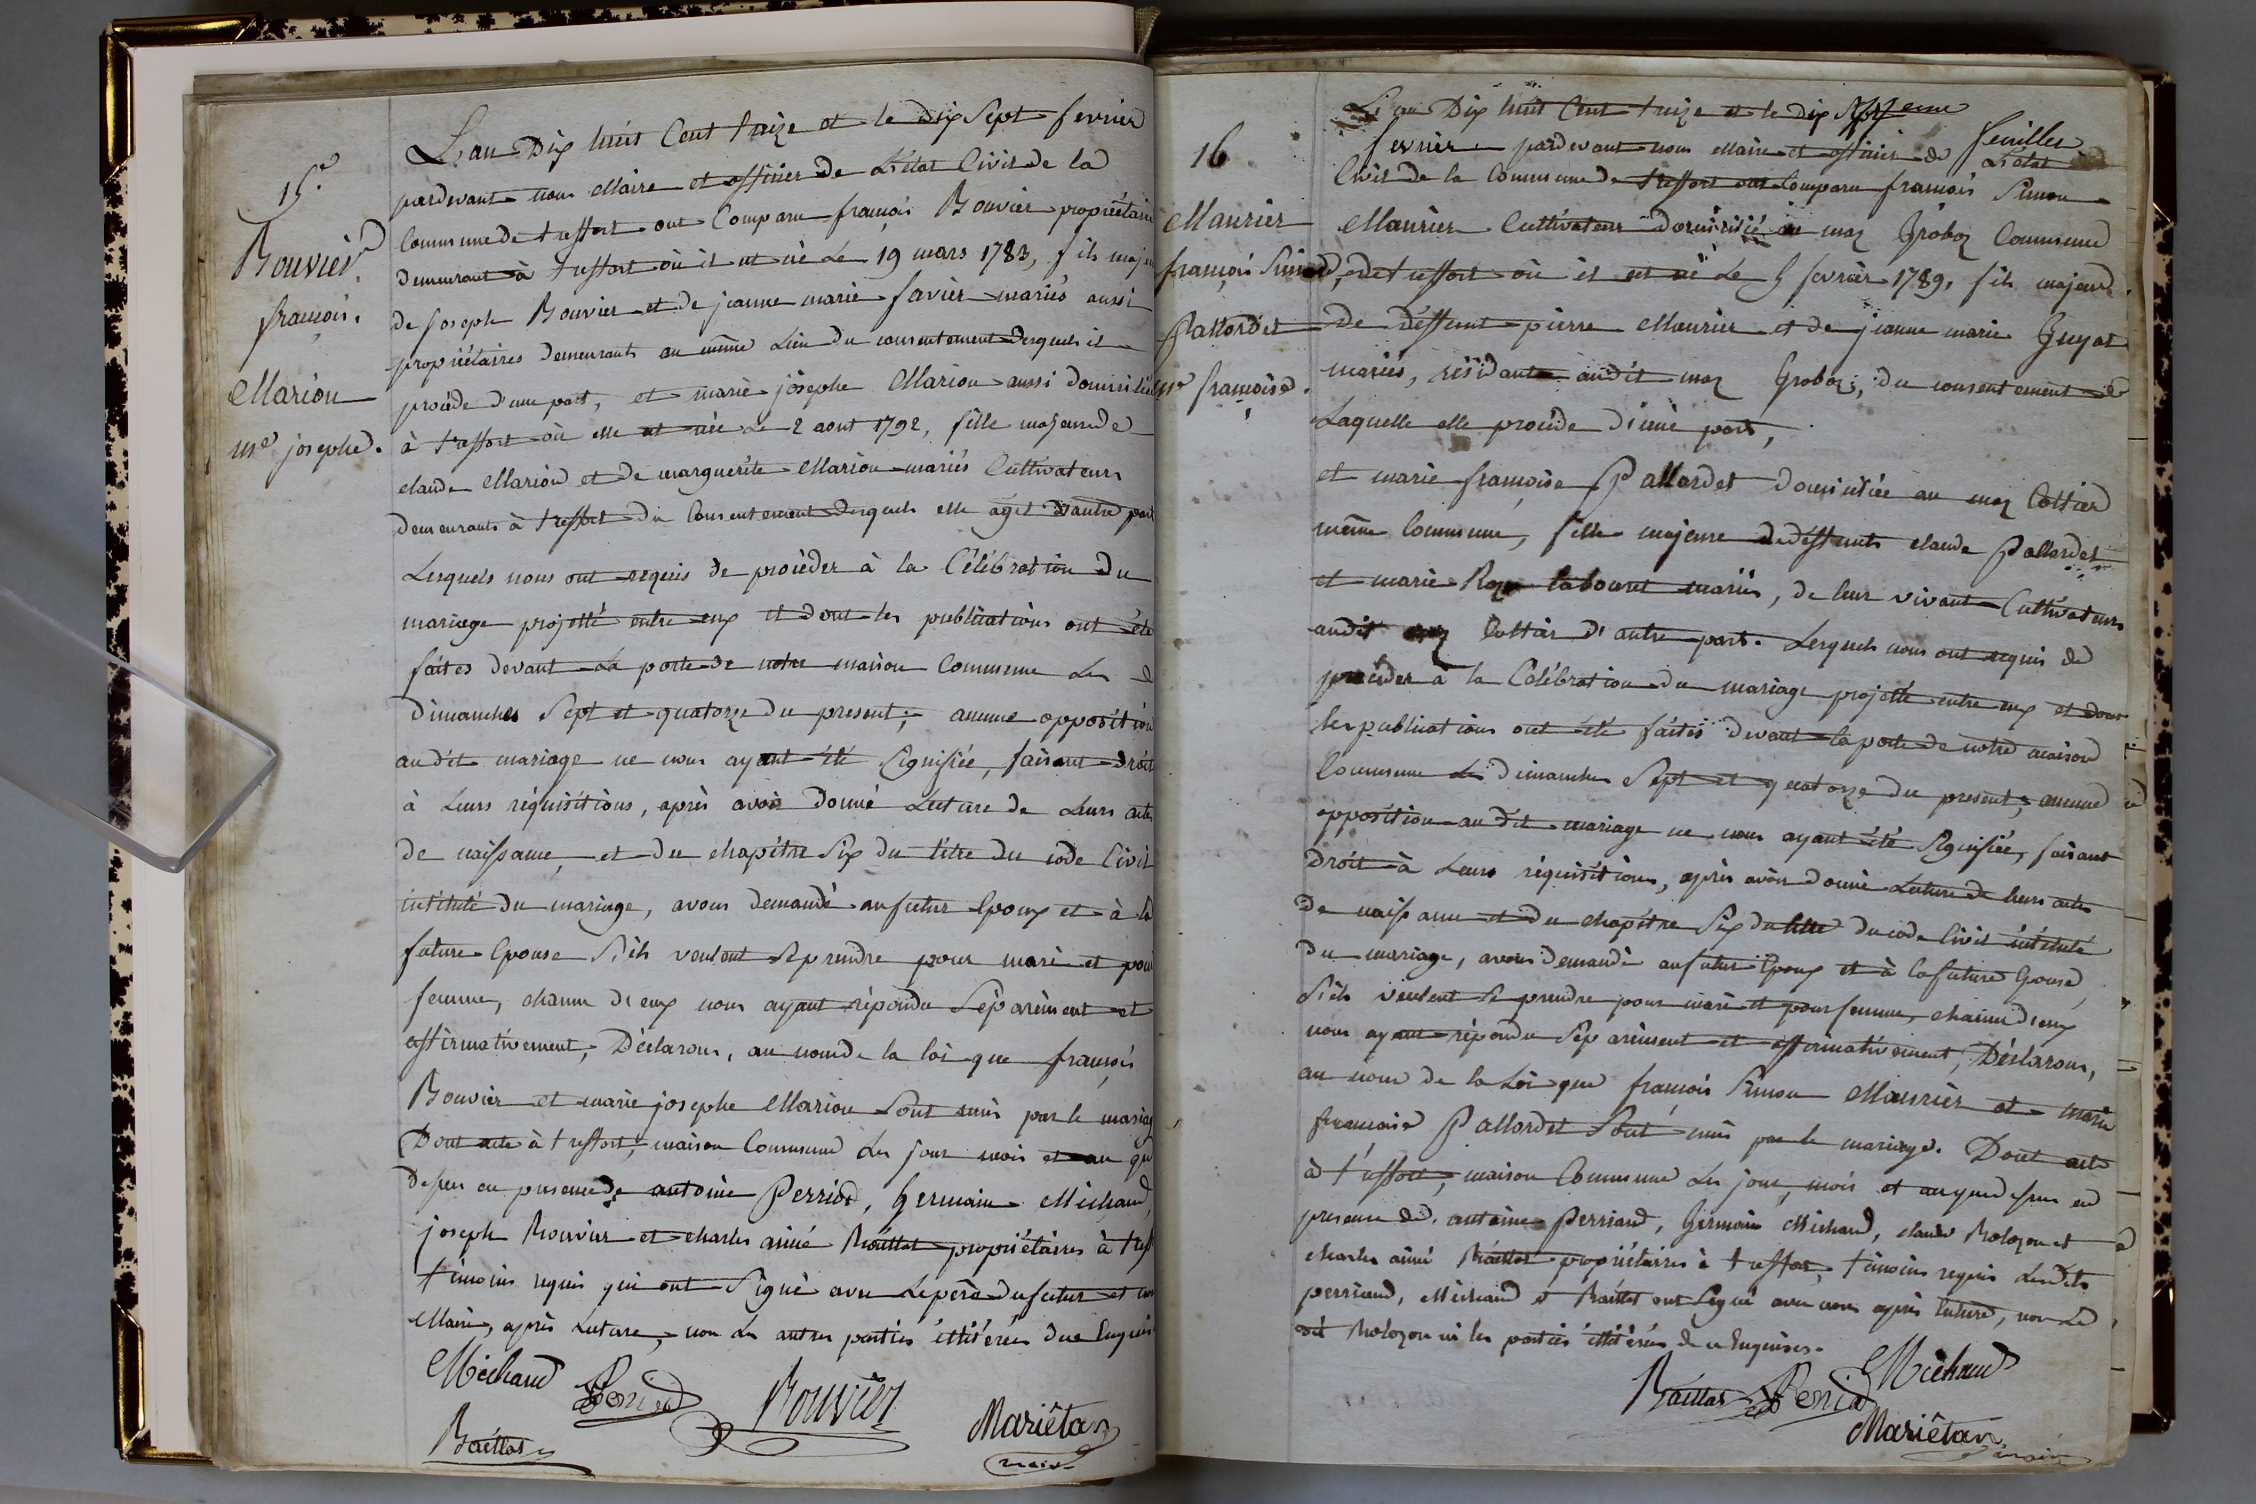 15e
Bouvier
françois.
Marion
me josephe.
L'an Dix huit Cent treize et le dix Sept fevrier
pardevant nous Maire et officier de L'état Civil de la
Commune de treffort ont Comparu françois Bouvier propriétaire
demeurant à treffort où il est né Le 19 mars 1783, fils majeur
de Joseph Bouvier et de jeanne marie favier mariés aussi
propriétaires demeurants au même Lieu du consentement desquels il
procède d'une part, et marie josephe Marion aussi domiciliée
à treffort où elle est née Le 2 aout 1792, fille majeure de
claude Marion et de marguerite Marion mariés Cultivateurs
demeurants à treffort du Consentement desquels elle agit d'autre part
Lesquels nous ont requis de procéder à la Célébration du
mariage projetté entre eux et dont les publications ont été
faites devant La porte de notre maison Commune Les
dimanches Sept et quatorze du present; aucune opposition
audit mariage ne nous ayant été Signifiée, faisant droit
à Leurs réquisitions, après avoir donné Lecture de Leurs actes
de naissance, et du chapitre Six du titre du code Civil
intitulé du mariage, avons demandé au futur Epoux et à la
future Epouse S'ils veulent Se prendre pour mari et pour
femme, chacun d'eux nous ayant répondu Séparément et
affirmativement, Déclarons, au nom de la loi que françois
Bouvier et marie josephe Marion Sont unis par le mariage
Dont acte à treffort, maison Commune Les jour mois et an que
dessus en presence de antoine Perriod, Germain Michaud,
joseph Bouvier et charles aimé Raillat propriétaires à treff
témoins requis qui ont Signé avec Le père du futur et nous
Maire, après Lecture, non Les autres parties illitérées de ce Enquises
Michaud Perriod Bouvier
Raillat Mariétan
maire
16
Maurier
françois Simon,
Pallordet
me françoise.
L'an Dix huit Cent treize et le dix Sept
fevrier pardevant nous Maire et officier de L'état
Civil de la Commune de treffort ont Comparu françois Simon
Maurier Cultivateur domicilié au maz Groboz Commune
de treffort où il est né Le 5 fevrier 1789, fils majeur
de déffunt pierre Maurier et de jeanne marie Guyot
mariés, résidante audit maz Groboz, du consentement de
Laquelle elle procède d'une part,
et marie françoise Pallordet domiciliée au maz Cottier
même Commune, fille majeure de déffunts claude Pallordet
et marie Roze tabouret mariés, de leur vivant Cultivateurs
audit maz Cottier d'autre part. Lesquels nous ont requis de
procéder à la Célébration du mariage projetté entre eux et dont
les publications ont été faites devant la porte de notre maison
Commune Les dimanches Sept et quatorze du present; aucune
opposition audit mariage ne nous ayant été Signifiée, faisant
Droit à Leurs réquisitions, après avoir donné Lecture de leurs actes
de naissance et du chapitre Six du titre du code Civil intitulé
du mariage, avons demandé au futur Epoux et à la future Epouse,
S'ils veulent Se prendre pour mari et pour femme, chacun d'eux
nous ayant répondu Séparément et affirmativement, Déclarons,
au nom de la Loi que françois Simon Maurier et marie
françoise Pallordet Sont unis par le mariage. Dont acte
à treffort, maison Commune Les jour, mois et an que dessus en
presence de antoine Perriaud, Germain Michaud, claude Bolozon et
charles aimé Raillat propriétaires à treffort, témoins requis Lesdits
perriaud, Michaud et Raillat ont Signé avec nous après Lecture, non Le
dit Bolozon ni les parties illitérées de ce Enquises.
Michaud
Raillat Perriod
Mariétan
maire